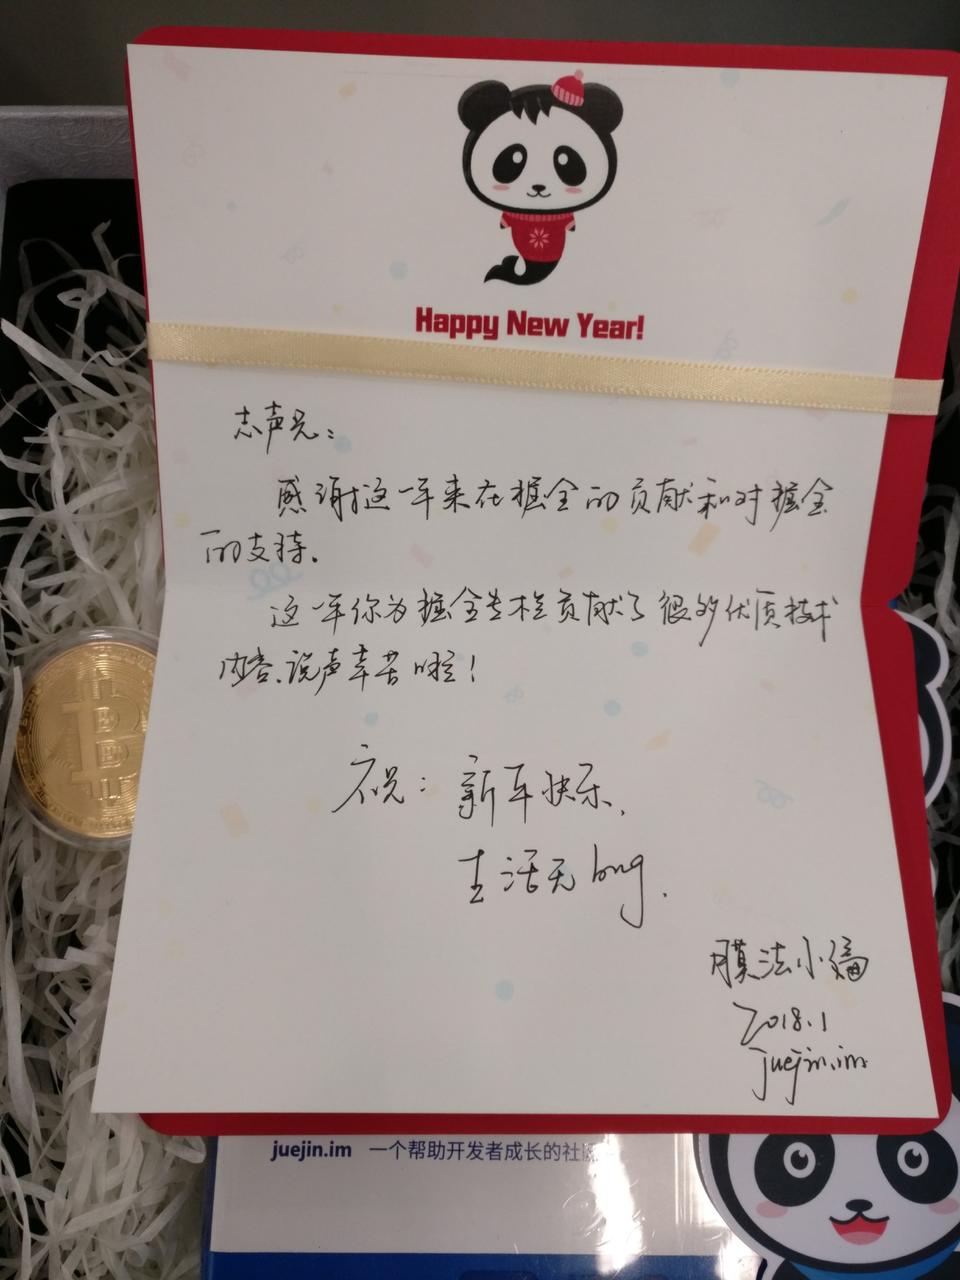 Happy New Year!
志声兄：
感谢这一年来在掘金的贡献和对掘金
的支持.
这一年你为掘金专栏贡献了很多优质技术
内容、说声辛苦啦！
祝：新年快乐、
生活无bug.
膜法小编
2018.1
juejin.im
juejin.im 一个帮助开发者成长的社